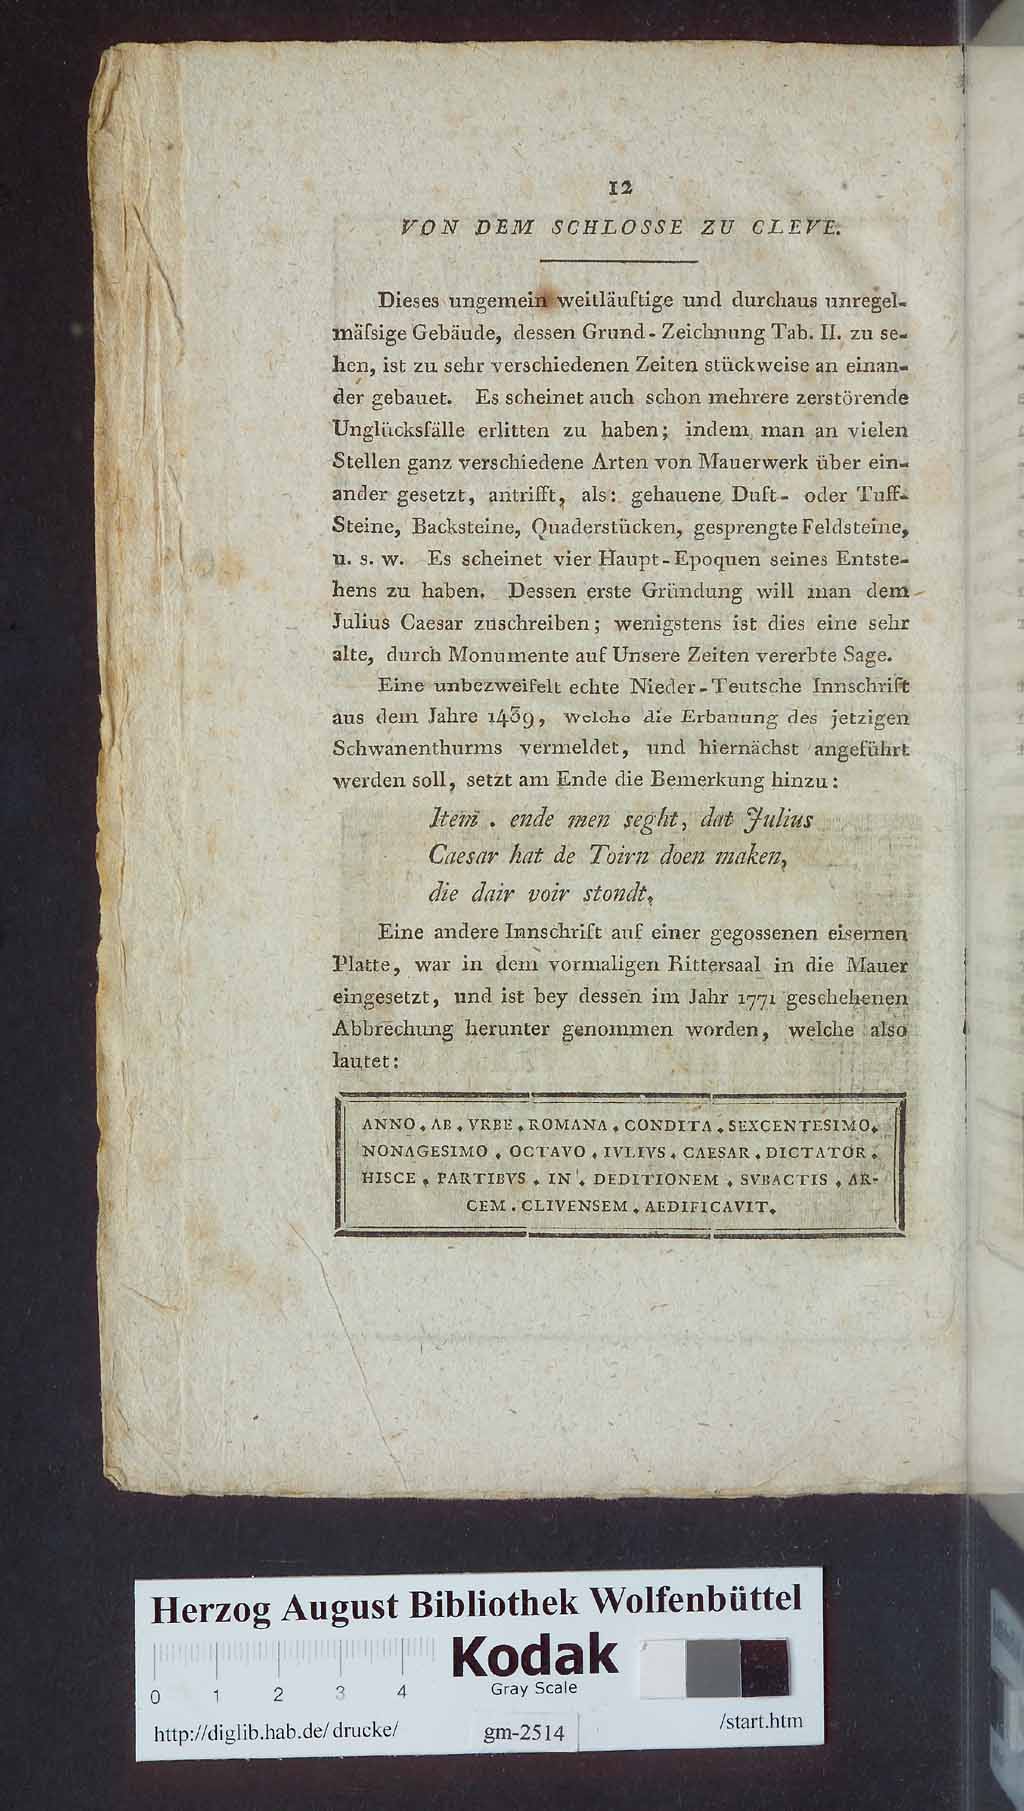 12
VON DEM SCHLOSSE ZU CLEVE.
Dieses ungemein weitläuftige und durchaus unregel-
mäſsige Gebäude, dessen Grund-Zeichnung Tab. II. zu se-
hen, ist zu sehr verschiedenen Zeiten stückweise an einan-
der gebauet. Es scheinet auch schon mehrere zerstörende
Unglücksfälle erlitten zu haben; indem man an vielen
Stellen ganz verschiedene Arten von Mauerwerk über ein-
ander gesetzt, antrifft, als: gehauene Duft- oder Tuff-
Steine, Backsteine, Quaderstücken, gesprengte Feldsteine,
u. s. w. Es scheinet vier Haupt-Epoquen seines Entste-
hens zu haben. Dessen erste Gründung will man dem
Julius Caesar zuschreiben; wenigstens ist dies eine sehr
alte, durch Monumente auf Unsere Zeiten vererbte Sage.
Eine unbezweifelt echte Nieder-Teutsche Innschrift
aus dem Jahre 1439, welche die Erbauung des jetzigen
Schwanenthurms vermeldet, und hiernächst angeführt
werden soll, setzt am Ende die Bemerkung hinzu:
Item . ende men seght, dat Julius
Caesar hat de Toirn doen maken,
die dair voir stondt.
Eine andere Innschrift auf einer gegossenen eisernen
Platte, war in dem vormaligen Rittersaal in die Mauer
eingesetzt, und ist bey dessen im Jahr 1771 geschehenen
Abbrechung herunter genommen worden, welche also
lautet:
ANNO . AB . VRBE . ROMANA . CONDITA . SEXCENTESIMO.
NONAGESIMO . OCTAVO . IVLIVS . CAESAR . DICTATOR .
HISCE . PARTIBVS . IN . DEDITIONEM . SVBACTIS . AR-
CEM . CLIVENSEM . AEDIFICAVIT.
Herzog August Bibliothek Wolfenbüttel
Kodak
Gray Scale
0 1 2 3 4
http://diglib.hab.de/drucke/ gm-2514 /start.htm